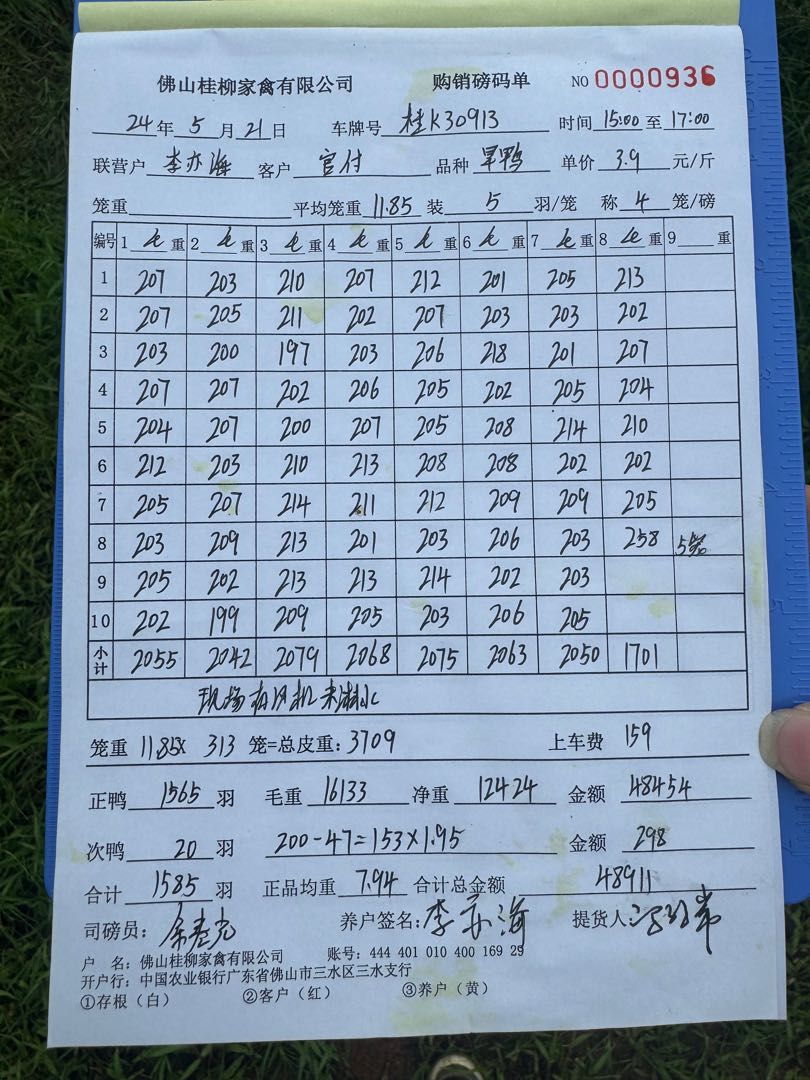 佛山桂柳家禽有限公司 购销磅码单 NO 0000936
24年5月21日 车牌号 桂K30913 时间 15:00至17:00
联营户 李亦海 客户 官付 品种 旱鸭 单价 3.9 元/斤
笼重 平均笼重 11.85 装 5 羽/笼 称 4 笼/磅
编号 1 毛重 2 毛重 3 毛重 4 毛重 5 毛重 6 毛重 7 毛重 8 毛重 9 重
1 207 203 210 207 212 201 205 213
2 207 205 211 202 207 203 203 202
3 203 200 197 203 206 218 201 207
4 207 207 202 206 205 202 205 204
5 204 207 200 207 205 208 214 210
6 212 203 210 213 208 208 202 202
7 205 207 214 211 212 209 209 205
8 203 209 213 201 203 206 203 258 5笼
9 205 202 213 213 214 202 203
10 202 199 209 205 203 206 205
小计 2055 2042 2079 2068 2075 2063 2050 1701
现场有风机未淋水
笼重 11.85X 313 笼=总皮重:3709 上车费 159
正鸭 1565 羽 毛重 16133 净重 12424 金额 48454
次鸭 20 羽 200-47=153×1.95 金额 298
合计 1585 羽 正品均重 7.94 合计总金额 48911
司磅员: 养户签名:李亦海 提货人:
户 名:佛山桂柳家禽有限公司 账号:444 401 010 400 169 29
开户行:中国农业银行广东省佛山市三水区三水支行
①存根(白) ②客户(红) ③养户(黄)